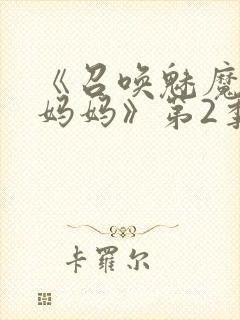 《召唤魅魔
妈妈》第2季
卡罗尔